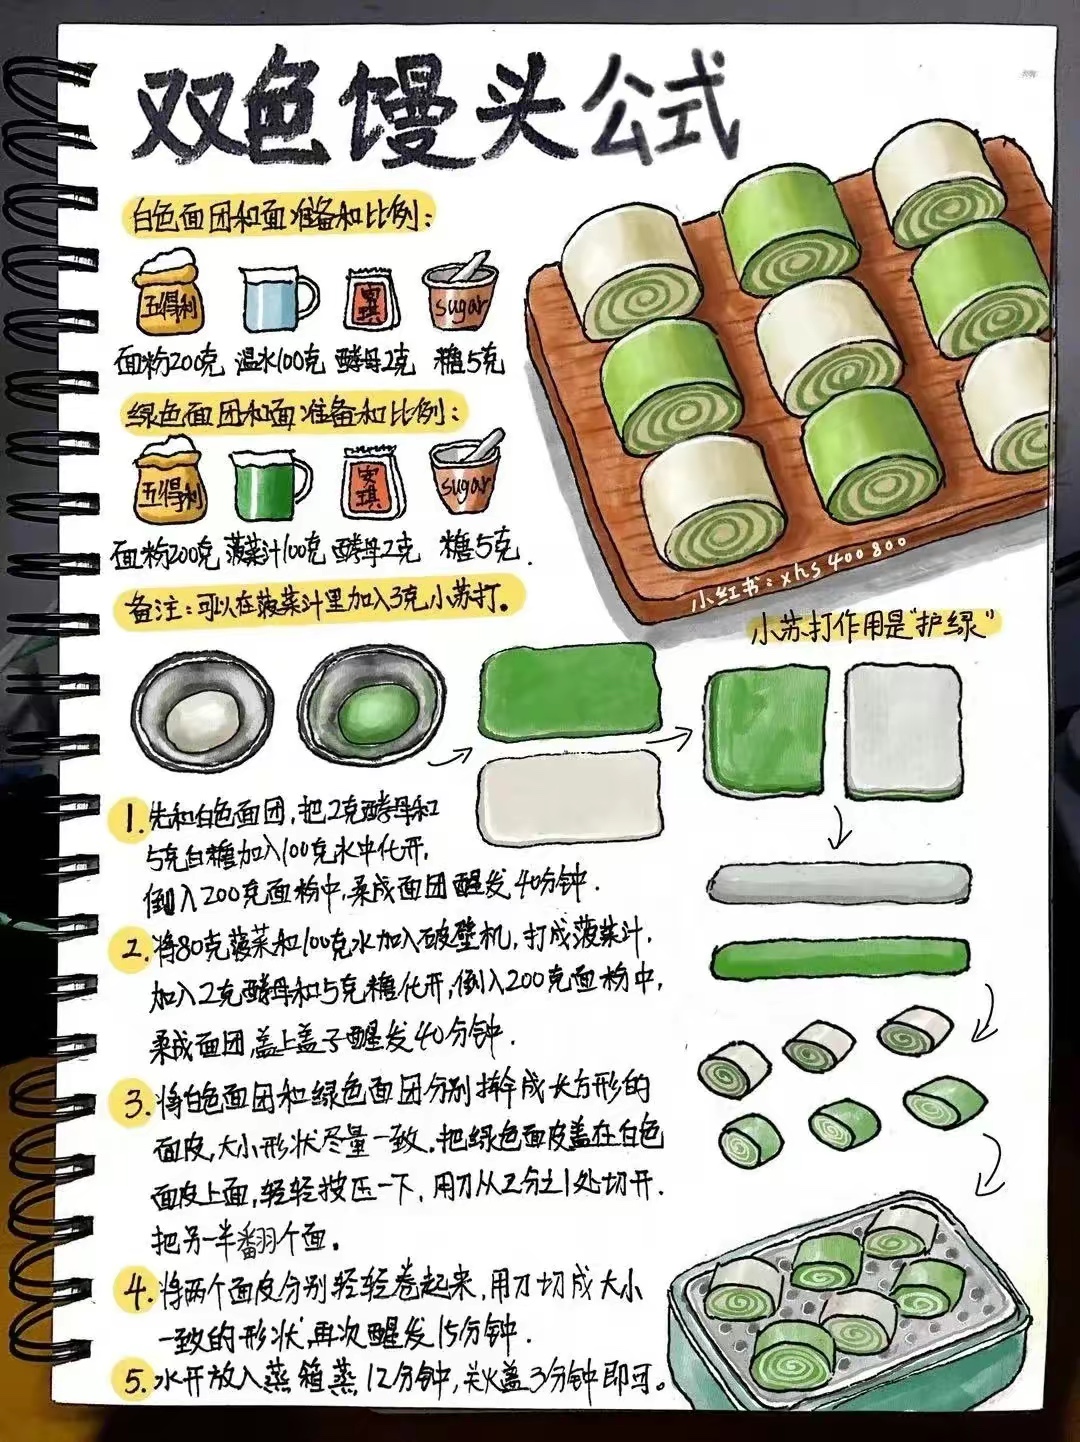 双色馒头公式
白色面团和面准备和比例：
五得利
安琪
sugar
面粉200克 温水100克 酵母2克 糖5克
绿色面团和面准备和比例：
五得利
安琪
sugar
面粉200克 菠菜汁100克 酵母2克 糖5克.
备注：可以在菠菜汁里加入3克小苏打。
小红书：xhs400800
小苏打作用是“护绿”
1.先和白色面团，把2克酵母和
5克白糖加入100克水中化开，
倒入200克面粉中，柔成面团醒发40分钟.
2.将80克菠菜和100克水加入破壁机，打成菠菜汁，
加入2克酵母和5克糖化开，倒入200克面粉中，
柔成面团，盖上盖子醒发40分钟.
3.将白色面团和绿色面团分别擀成长方形的
面皮，大小形状尽量一致，把绿色面皮盖在白色
面皮上面，轻轻按压一下，用刀从2分之1处切开.
把另一半翻个面。
4.将两个面皮分别轻轻卷起来，用刀切成大小
一致的形状，再次醒发15分钟.
5.水开放入蒸箱蒸12分钟，关火盖3分钟即可。